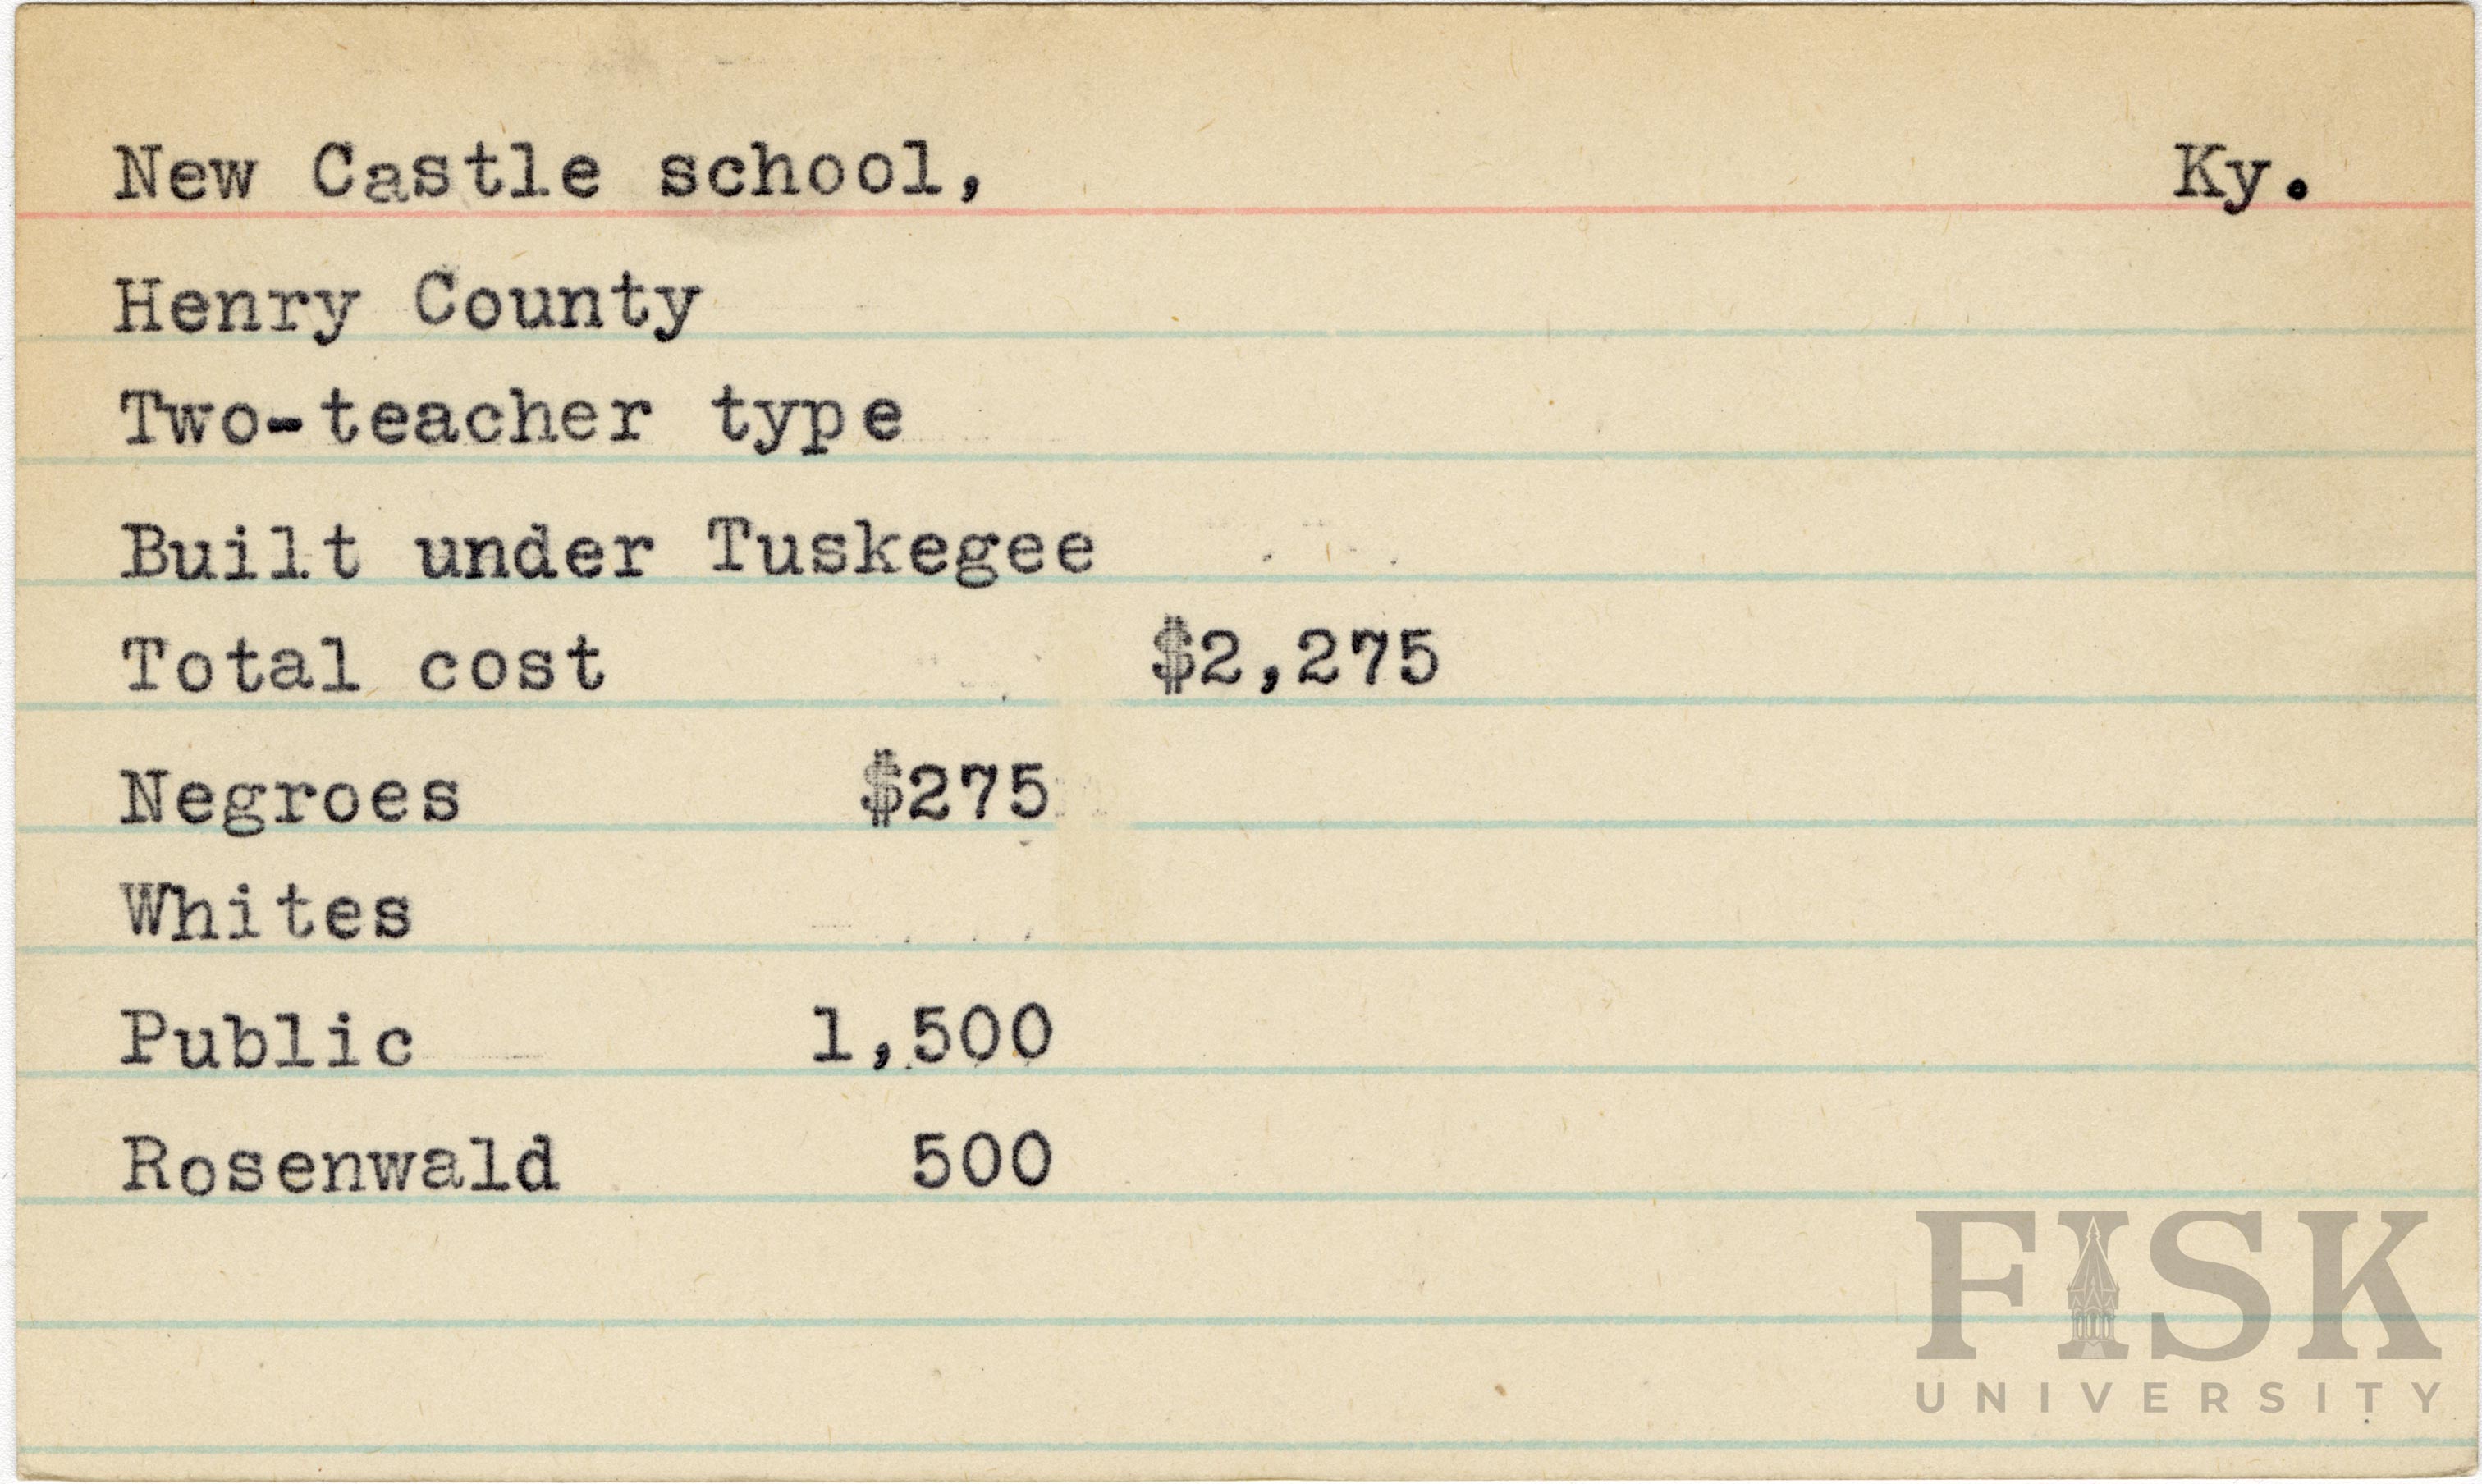 New Castle school, Ky.
Henry County
Two-teacher type
Built under Tuskegee
Total cost $2,275
Negroes $275
Whites
Public 1,500
Rosenwald 500
FISK
UNIVERSITY